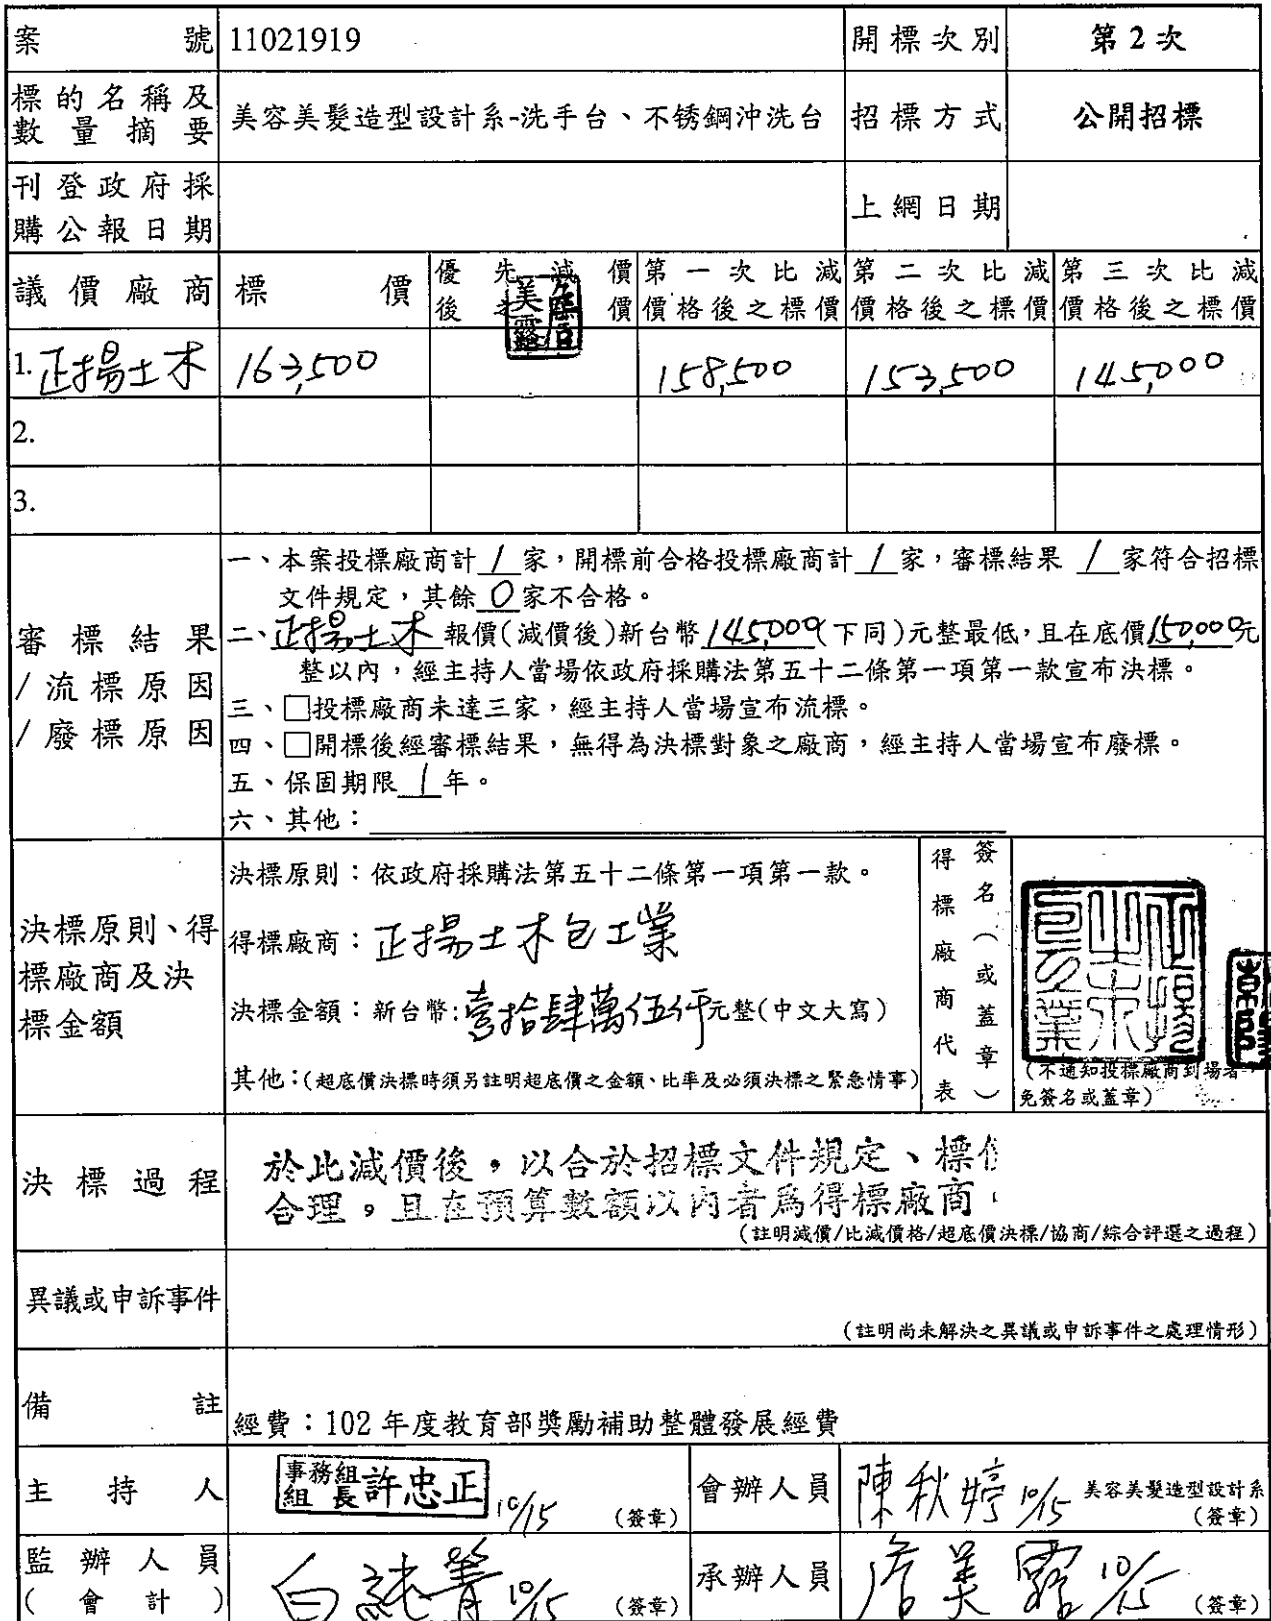 案號 11021919 開標次別 第2次
標的名稱及
數量摘要 美容美髮造型設計系-洗手台、不锈鋼沖洗台 招標方式 公開招標
刊登政府採
購公報日期 上網日期
議價廠商 標價 優先減價 第一次比減 第二次比減 第三次比減
後之標價 價格後之標價 價格後之標價 價格後之標價
1. 正揚土木 163,500 158,500 153,500 145,000
2.
3.
審標結果
/流標原因
/廢標原因
一、本案投標廠商計1家，開標前合格投標廠商計1家，審標結果1家符合招標
文件規定，其餘0家不合格。
二、正揚土木報價(減價後)新台幣145,000(下同)元整最低，且在底價150,000元
整以內，經主持人當場依政府採購法第五十二條第一項第一款宣布決標。
三、□投標廠商未達三家，經主持人當場宣布流標。
四、□開標後經審標結果，無得為決標對象之廠商，經主持人當場宣布廢標。
五、保固期限1年。
六、其他：
決標原則、得
標廠商及決
標金額
決標原則：依政府採購法第五十二條第一項第一款。
得標廠商：正揚土木包工業
決標金額：新台幣:壹拾肆萬伍仟元整(中文大寫)
其他：(超底價決標時須另註明超底價之金額、比率及必須決標之緊急情事)
得標廠商代表
簽名（或蓋章）
正揚土木包工業
(不通知投標廠商到場者，
免簽名或蓋章)
決標過程
於此減價後，以合於招標文件規定、標
合理，且在預算數額以內者為得標廠商
(註明減價/比減價格/超底價決標/協商/綜合評選之過程)
異議或申訴事件
(註明尚未解決之異議或申訴事件之處理情形)
備註 經費：102年度教育部獎勵補助整體發展經費
主持人 事務組組長 許忠正 10/15 (簽章) 會辦人員 陳秋婷 10/15 美容美髮造型設計系
(簽章)
監辦人員
(會計) 白純菁 10/15 (簽章) 承辦人員 詹美露 10/15 (簽章)